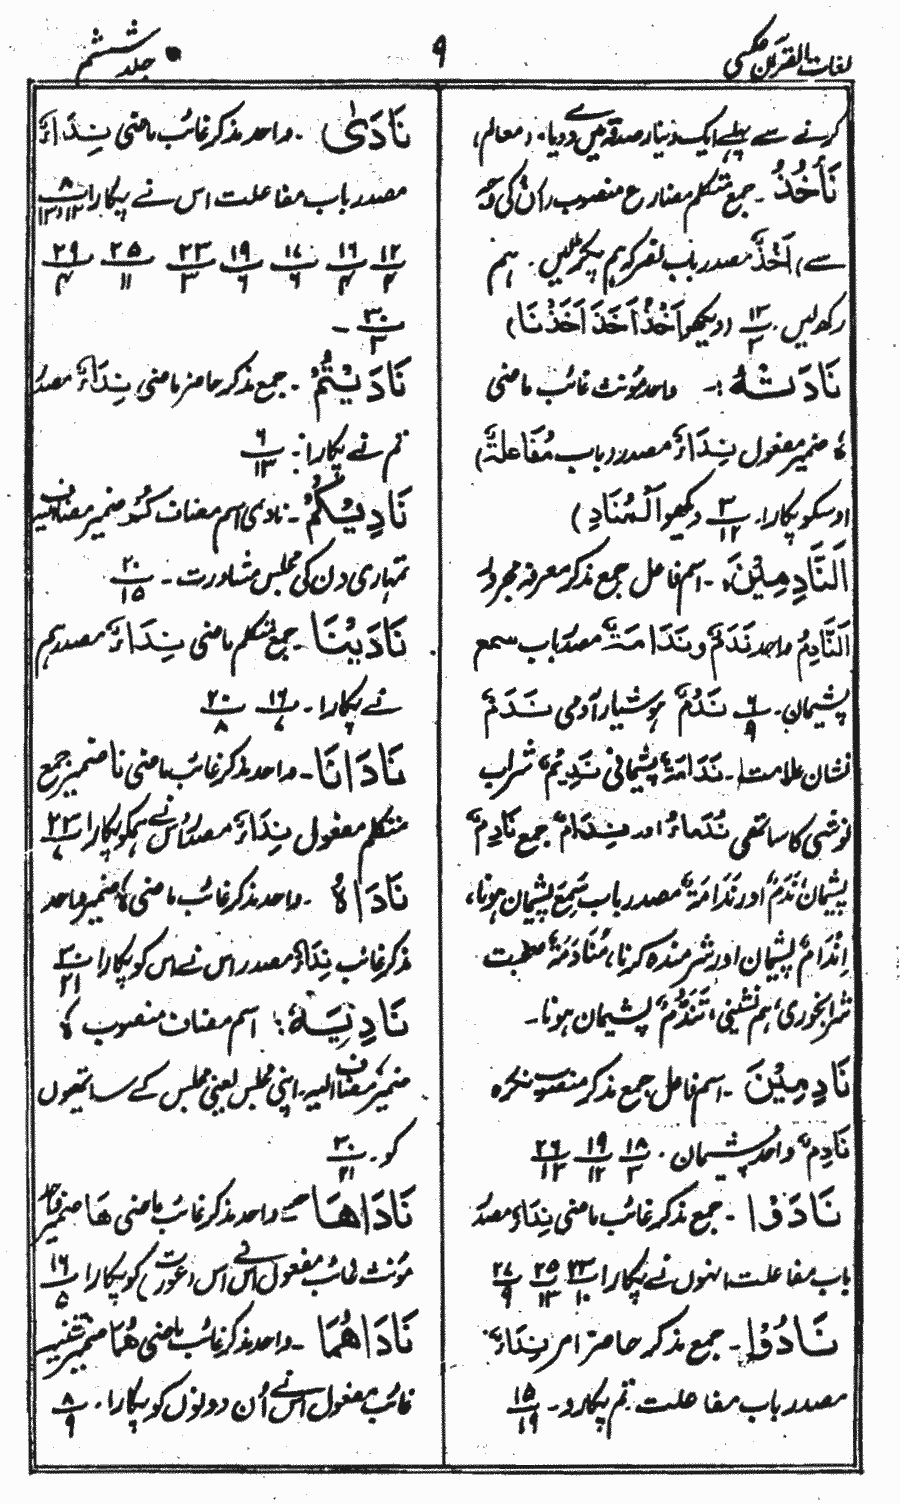 لغات القرآن عکسی
۹
جلد ششم
کرنے سے پہلے ایک دینار صدقہ میں دے دیا۔ (معالم)
نَأْخُذُ ۔ جمع متکلم مضارع منصوب (ان کی وجہ
سے) اَخْذٌ مصدر باب نصر کہ ہم پکڑ لیں۔ ہم
رکھ لیں۔ ۱۲/۲ (دیکھو اَخْذٌ اَخَذَ اَخَذْنَا)
نَادَتْهُ :۔ واحد مؤنث غائب ماضی
ہٗ ضمیر مفعول نِدَاءٌ مصدر (باب مُفَاعَلَةٌ)
اوسکو پکارا۔ ۳/۱۲ دیکھو اَلْمُنَادِ)
اَلنَّادِمِيْنَ ۔ اسم فاعل جمع مذکر معرفہ مجرور
اَلنَّادِمُ واحد نَدَمٌ و نَدَامَةٌ مصدر باب سمع
پشیمان۔ ۶/۹ نَدُمٌ ہوشیار آدمی نَدَمٌ
نشان علامت۔ نَدَامَةٌ پشیمانی نَدِيْمٌ شراب
نوشی کا ساتھی نُدَمَاءُ اور نِدَامٌ جمع نَادِمٌ
پشیمان نَدَمٌ اور نَدَامَةٌ مصدر باب سَمِعَ پشیمان ہونا،
اِنْدَامٌ پشیمان اور شرمندہ کرنا، مُنَادَمَةٌ صحبت
شرابخوری، ہم نشینی، تَنَدُّمٌ پشیمان ہونا۔
نَادِمِيْنَ ۔ اسم فاعل جمع مذکر منصوب نکرہ
نَادِمٌ واحد پشیمان۔ ۱۸/۳ ۱۹/۱۲ ۲۶/۱۳
نَادَوْا ۔ جمع مذکر غائب ماضی نِدَاءٌ مصدر
باب مفاعلت انہوں نے پکارا ۲۳/۱۰ ۲۵/۱۳ ۲۷/۹
نَادُوْا ۔ جمع مذکر حاضر امر نِدَاءٌ
مصدر باب مفاعلت۔ تم پکارو۔ ۱۵/۱۹
نَادٰى ۔ واحد مذکر غائب ماضی نِدَاءٌ
مصدر باب مفاعلت اس نے پکارا ۸/۱۲،۱۳
۱۲/۴ ۱۶/۴ ۱۷/۶ ۱۹/۶ ۲۳/۳ ۲۵/۱۱ ۲۹/۴
۳۰/۳ ۔
نَادَيْتُمْ ۔ جمع مذکر حاضر ماضی نِدَاءٌ مصدر
تم نے پکارا :۔ ۶/۱۳
نَادِيْكُمْ ۔ نادی اسم مضاف کُمْ ضمیر مضاف الیہ
تمہاری دن کی مجلس مشاورت ۔ ۲۰/۱۵
نَادَيْنَا ۔ جمع متکلم ماضی نِدَاءٌ مصدر ہم
نے پکارا ۔ ۱۶/۷ ۲۰/۸
نَادَانَا ۔ واحد مذکر غائب ماضی نا ضمیر جمع
متکلم مفعول نِدَاءٌ مصدر اس نے ہمکو پکارا ۲۳/۷
نَادَاهُ ۔ واحد مذکر غائب ماضی ہٗ ضمیر واحد
مذکر غائب نِدَاءٌ مصدر اس نے اس کو پکارا ۳۰/۲۱
نَادِيَهٗ :۔ اسم مضاف منصوب ہٗ
ضمیر مضاف الیہ۔ اپنی مجلس یعنی مجلس کے ساتھیوں
کو ۔ ۳۰/۲۱
نَادَاهَا ۔ واحد مذکر غائب ماضی هَا ضمیر واحد
مؤنث غائب مفعول اس نے اس (عورت) کو پکارا ۱۶/۵
نَادَاهُمَا ۔ واحد مذکر غائب ماضی هُمَا ضمیر تثنیہ
غائب مفعول اس نے اُن دونوں کو پکارا ۔ ۸/۹